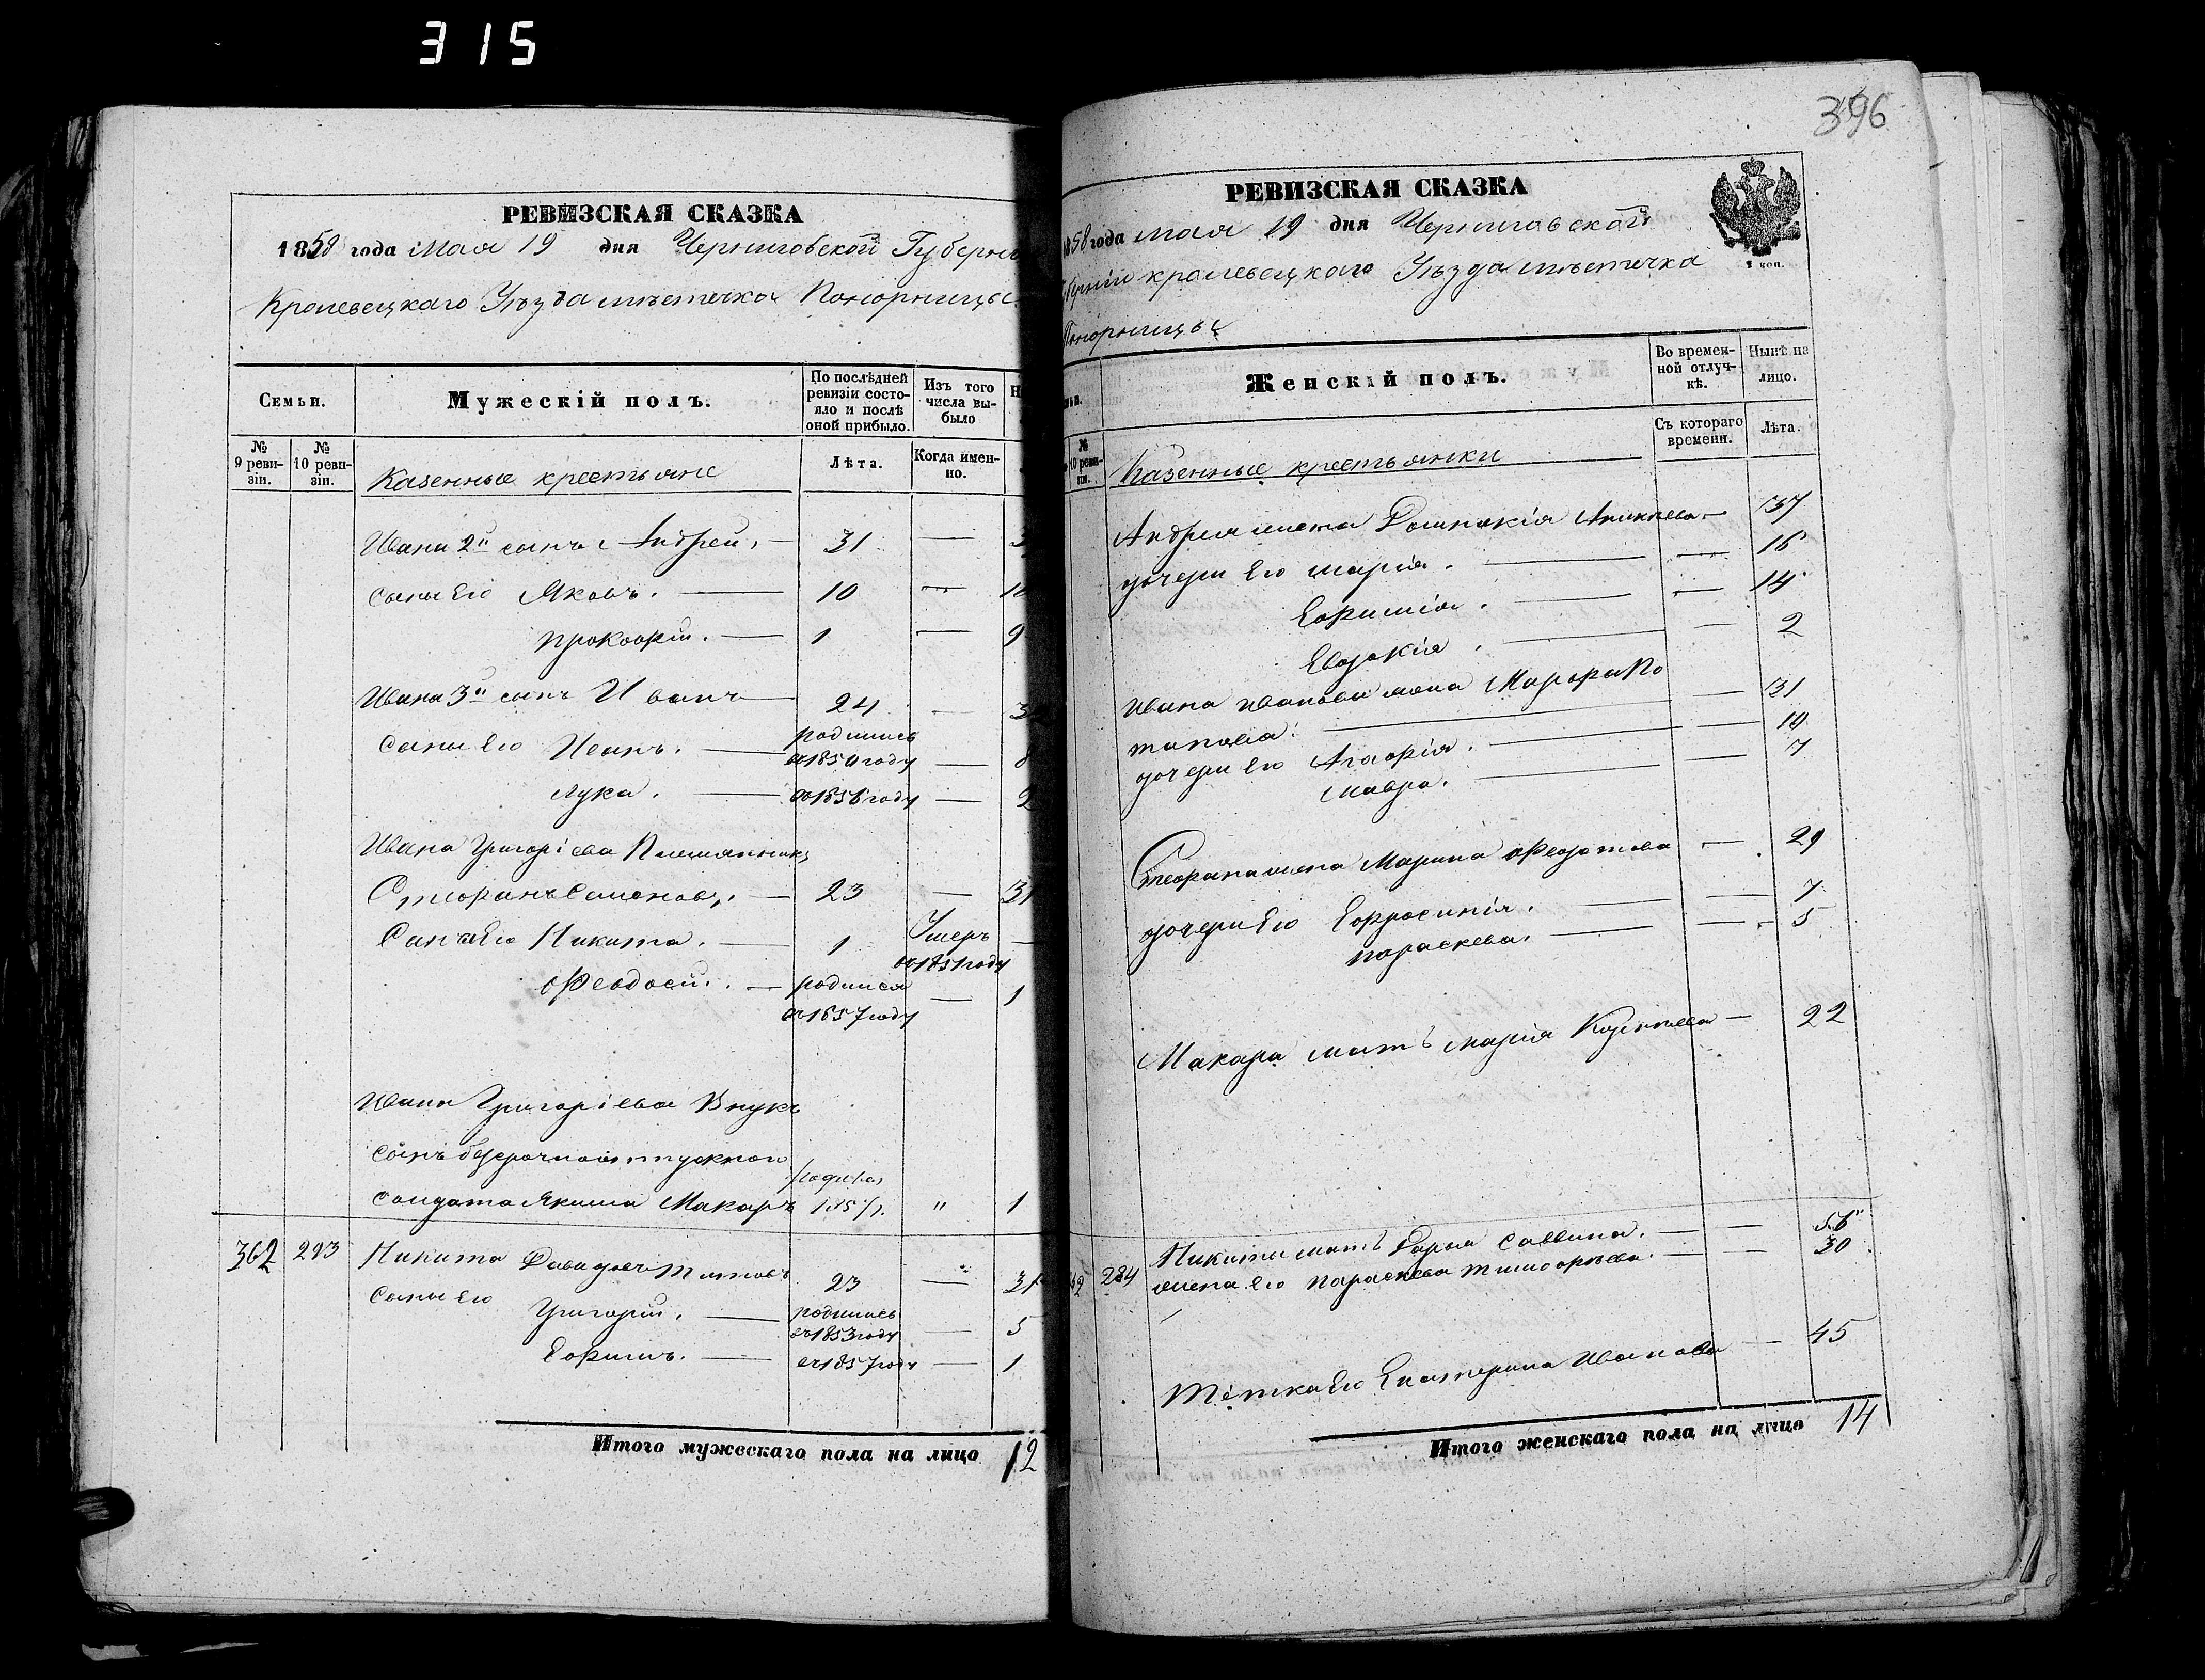 315
РЕВИЗСКАЯ СКАЗКА
1858 года Мая 19 дня Черниговской Губерн
Кролевецкаго Уѣзда мѣстечка Понорницы
Семьи.
Мужескій полъ.
По послѣдней ревизіи состояло и послѣ оной прибыло.
Изъ того числа выбыло
Н
№ 9 ревизіи.
№ 10 ревизіи.
Казенные крестьяне
Лѣта.
Когда именно.
Ивана 2й сынъ Андрей. — 31 — 3
сыны Его Яковъ. — 10 — 1
Прокофій. — 1 — 9
Ивана 3й сынъ Иванъ — 24 — 3
сыны Его Иванъ. — родились въ 1850 году — 8
Лука. — въ 1856 году — 2
Ивана Григоріева Племянникъ
Стефанъ Семеновъ. — 23 — 31
Сыны Его Никита. — 1 Умеръ въ 1851 году —
Феодосій. — родился въ 1857 году — 1
Ивана Григоріева Внукъ
сынъ безсрочноотпускнаго
солдата Якима Макаръ 1857 г. " 1
362 293 Никита Давидовъ Титовъ 23 — 31
Сыны Его Григорій. — родились въ 1853 году — 5
Ефимъ. — въ 1857 году — 1
Итого мужескаго пола на лицо 12
396
РЕВИЗСКАЯ СКАЗКА
1858 года мая 19 дня Черниговской
берніи кролевецкаго Уѣзда мѣстечка
Понорницы
1 коп.
ьи.
Женскій полъ.
Во временной отлучкѣ.
Нынѣ на лицо.
№ 10 ревизіи.
Казенные крестьянки
Съ котораго времени.
Лѣта.
Андрея жена Домникія — 37
дочери Его Марія. — — 16
Ефимія. — — 14
Евдокія. — — 2
Ивана Иванова жена Марфа По
тапова. — — 31
дочери Его Агафія. — — 10
Мавра. — — 7
Стефана жена Марина Федотова — 29
дочери Его Ефросинія. — — 7
Параскева. — — 5
Макара мать Марія — 22
284 Никиты мать Дарья Саввина. — — 56
жена Его Параскева Тимофѣева. — — 30
Тётка Его Екатерина Иванова — 45
Итого женскаго пола на лицо 14